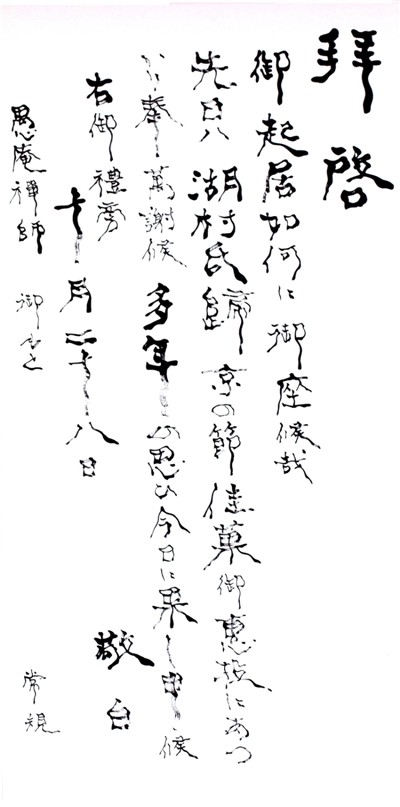 拝啓
御起居如何に御座候哉
先日ハ湖村氏帰京の節佳菓御恵投にあつ
かり奉萬謝候多年の思ひ今日に果し申候
右御禮旁
敬白
十月二十八日
常規
愚庵禅師
御もと